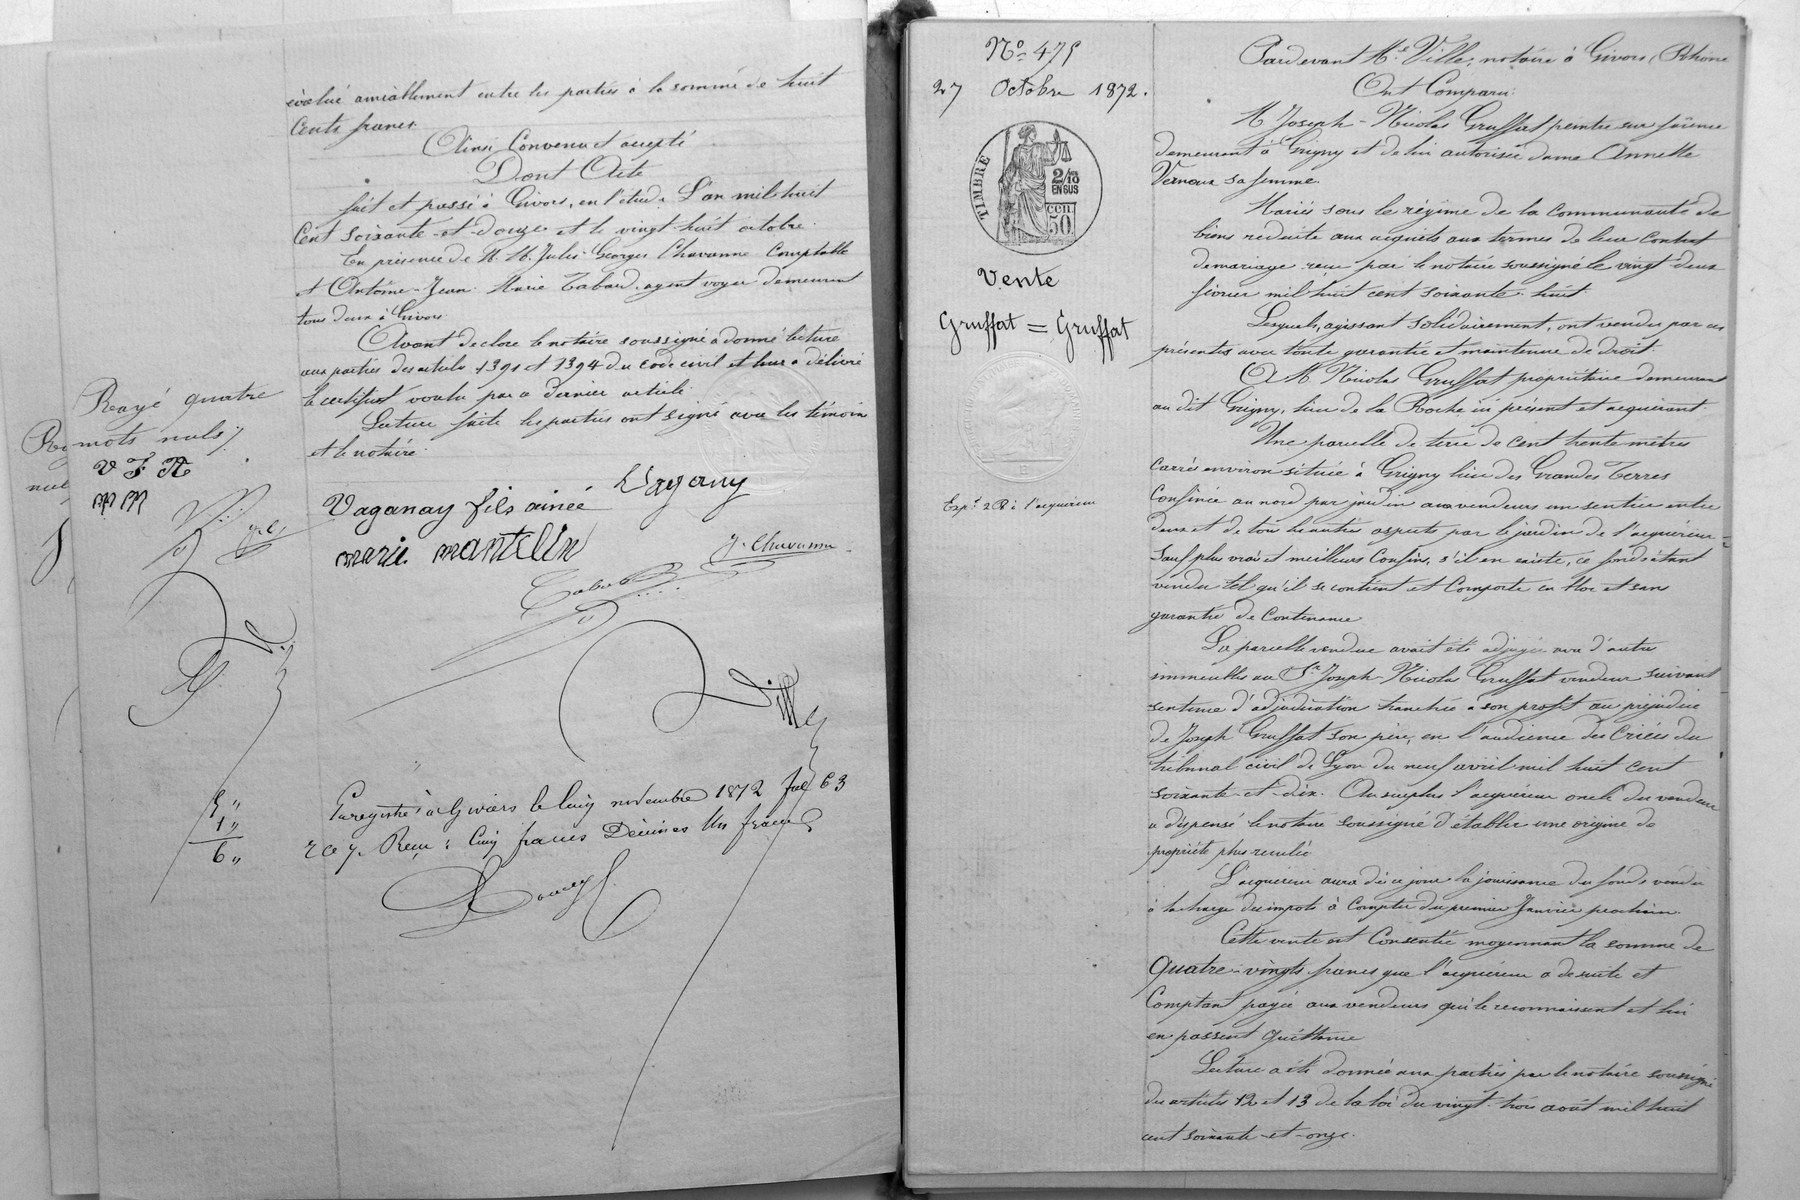 évalué amiablement entre les parties à la somme de huit
Cents francs.
Ainsi Convenu et accepté
Dont Acte
fait et passé à Givors, en l'étude L'an mil huit
Cent soixante-et-douze et le vingt-huit octobre.
En présence de M. M. Jules Georges Chavanne Comptable
et Antoine-Jean Marie Tabard, agent voyer demeurant
tous deux à Givors
Avant de clore le notaire soussigné a donné lecture
aux parties des articles 1391 et 1394 du code civil et leur a délivré
le certificat voulu par ce dernier article.
Lecture faite les parties ont signé avec les témoins
et le notaire.
Rayé quatre
mots nuls
V F A
M M
Vaganay
Vaganay fils ainée
marie mantelin
J. Chavanne
Tabard
Ville
Enregistré à Givors le cinq novembre 1872 fol 63
r ce 7. Reçu : Cinq francs Décimes Un franc
5 "
1 "
6 "
No 475
27 Octobre 1872.
TIMBRE
2/10
EN SUS
50 cen
Vente
Gruffat = Gruffat
Expon 2R à l'acquéreur
Pardevant Me Ville, notaire à Givors (Rhône
Ont Comparu:
M Joseph-Nicolas Gruffat peintre sur faïence
demeurant à Grigny et de lui autorisée dame Annette
Vernoux sa femme.
Mariés sous le régime de la Communauté de
biens réduite aux acquets aux termes de leur Contrat
de mariage reçu par le notaire soussigné le vingt-deux
février mil huit cent soixante-huit
Lesquels, agissant solidairement, ont vendu par ces
présentes avec toute garantie et maintenue de droit.
A M Nicolas Gruffat propriétaire demeurant
au dit Grigny, lieu de la Roche ici présent et acquérant.
Une parcelle de terre de cent trente mètres
Carrés environ située à Grigny lieu des Grandes Terres
Confinée au nord par jardin aux vendeurs un sentier entre
deux et de tous les autres aspects par le jardin de l'acquéreur =
Sauf plus vrais et meilleurs Confins, s'il en existe, ce fonds étant
vendu tel qu'il se contient et Comporte en bloc et sans
garantie de Contenance
La parcelle vendue avait été adjugée avec d'autres
immeubles au Sr Joseph-Nicolas Gruffat vendeur suivant
sentence d'adjudication tranchée à son profit au préjudice
de Joseph Gruffat son père, en l'audience des Criées du
tribunal civil de Lyon du neuf avril mil huit cent
soixante-et-dix. Au surplus l'acquéreur oncle du vendeur
a dispensé le notaire soussigné d'établir une origine de
propriété plus reculée
L'acquéreur aura dès ce jour la jouissance du fonds vendu
à la charge des impots à Compter du premier Janvier prochain.
Cette vente est Consentie moyennant la somme de
Quatre-vingts francs que l'acquéreur a de suite et
Comptant payée aux vendeurs qui le reconnaissent et lui
en passent quittance
Lecture a été donnée aux parties par le notaire soussigné
des articles 12 et 13 de la loi du vingt-trois août mil huit
cent soixante-et-onze.